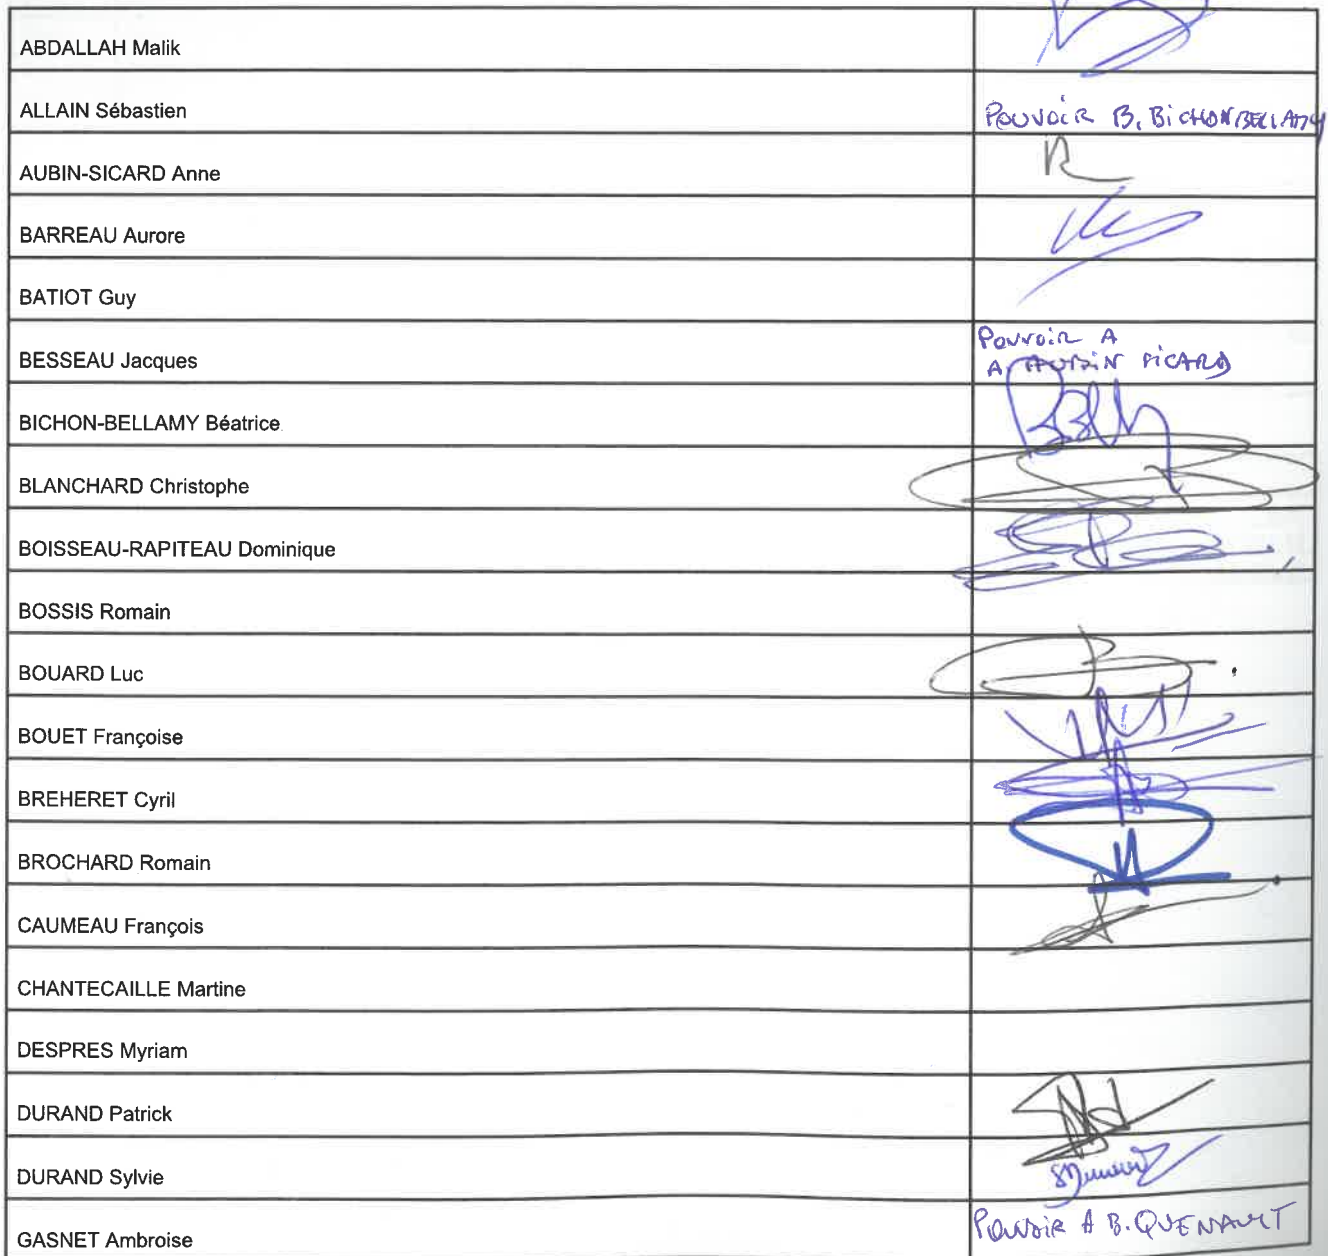 ABDALLAH Malik
ALLAIN Sébastien
POUVOIR B. BICHON BELLAMY
AUBIN-SICARD Anne
BARREAU Aurore
BATIOT Guy
BESSEAU Jacques
Pouvoir A
A AUBIN SICARD
BICHON-BELLAMY Béatrice
BLANCHARD Christophe
BOISSEAU-RAPITEAU Dominique
BOSSIS Romain
BOUARD Luc
BOUET Françoise
BREHERET Cyril
BROCHARD Romain
CAUMEAU François
CHANTECAILLE Martine
DESPRES Myriam
DURAND Patrick
DURAND Sylvie
GASNET Ambroise
Pouvoir A B. QUENAULT